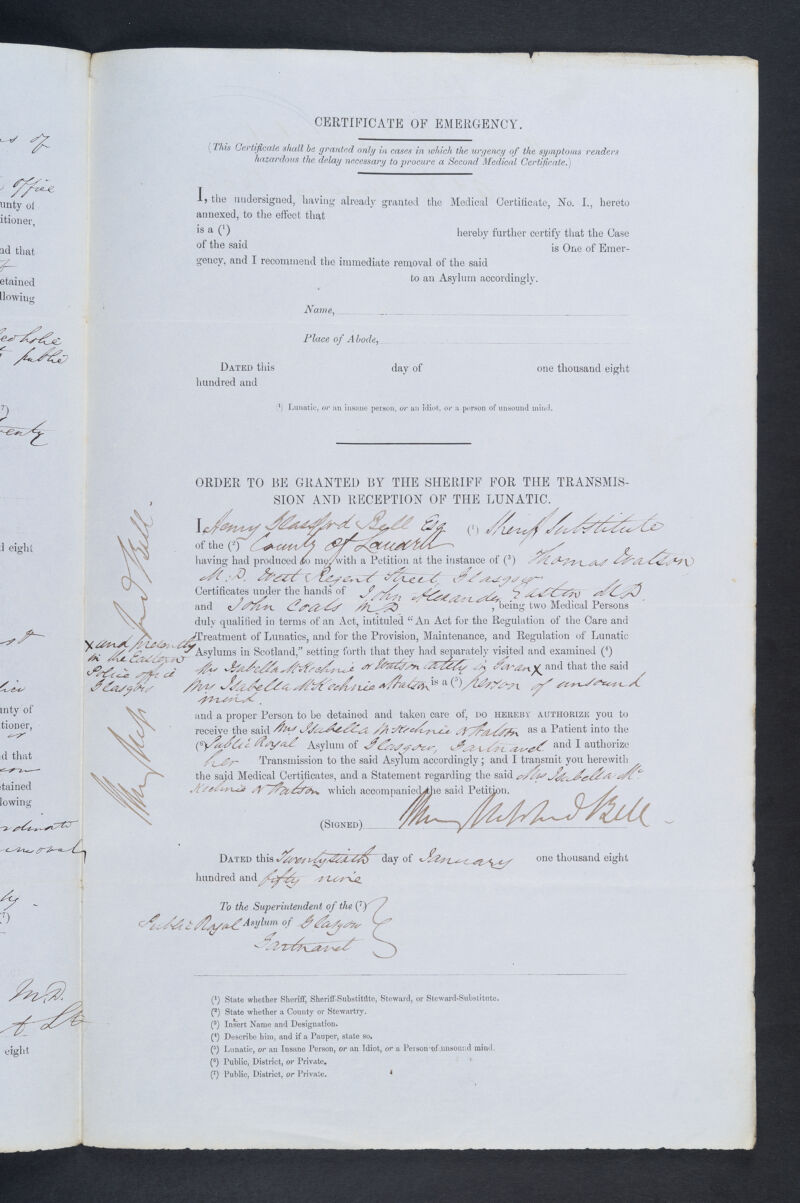 s of
office
unty of
itioner,
nd that
etained
llowing
public
(7)
l eight
unty of
tioner,
d that
tained
lowing
M.D.
eight
CERTIFICATE OF EMERGENCY.
(This Certificate shall be granted only in cases in which the urgency of the symptoms renders
hazardous the delay necessary to procure a Second Medical Certificate.)
I, the undersigned, having already granted the Medical Certificate, No. I., hereto
annexed, to the effect that
is a (1) hereby further certify that the Case
of the said is One of Emer-
gency, and I recommend the immediate removal of the said
to an Asylum accordingly.
Name,
Place of Abode,
DATED this day of one thousand eight
hundred and
(1) Lunatic, or an insane person, or an idiot, or a person of unsound mind.
ORDER TO BE GRANTED BY THE SHERIFF FOR THE TRANSMIS-
SION AND RECEPTION OF THE LUNATIC.
I Henry Glassford Bell Esq (1) Sheriff Substitute
of the (2) County of Lanark
having had produced to me, with a Petition at the instance of (3) Thomas Watson
M.D. West Regent Street, Glasgow
Certificates under the hands of John Alexander Easton M.D.
and John Coats M.D. , being two Medical Persons
duly qualified in terms of an Act, intituled "An Act for the Regulation of the Care and
Treatment of Lunatics, and for the Provision, Maintenance, and Regulation of Lunatic
Asylums in Scotland," setting forth that they had separately visited and examined (4)
Mrs Isabella McKechnie or Watson lately in Govan x and that the said
x and presently
in the Eastern
Police office
Glasgow
Mrs Isabella McKechnie or Watson is a (5) person of unsound
mind.
and a proper Person to be detained and taken care of, DO HEREBY AUTHORIZE you to
receive the said Mrs Isabella McKechnie or Watson as a Patient into the
(6) Public Royal Asylum of Glasgow, Gartnavel and I authorize
her Transmission to the said Asylum accordingly; and I transmit you herewith
the said Medical Certificates, and a Statement regarding the said Mrs Isabella Mc
Kechnie or Watson which accompanied the said Petition.
(SIGNED) Henry Glassford Bell
Henry Glassford Bell.
DATED this Twenty sixth day of January one thousand eight
hundred and fifty nine
To the Superintendent of the (7)
Public Royal Asylum of Glasgow
Gartnavel
(1) State whether Sheriff, Sheriff-Substitute, Steward, or Steward-Substitute.
(2) State whether a County or Stewartry.
(3) Insert Name and Designation.
(4) Describe him, and if a Pauper, state so.
(5) Lunatic, or an Insane Person, or an Idiot, or a Person of unsound mind.
(6) Public, District, or Private.
(7) Public, District, or Private.